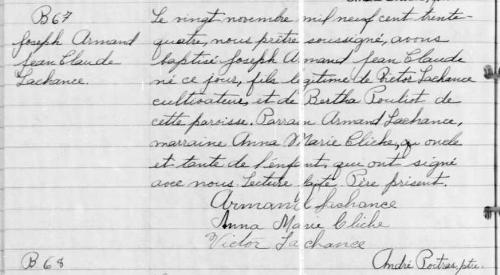 B 67
Joseph Armand
Jean Claude
Lachance.
Le vingt novembre mil neuf cent trente-
quatre, nous prêtre soussigné, avons
baptisé Joseph Armand Jean Claude
né ce jour, fils légitime de Victor Lachance
cultivateur, et de Bertha Pouliot de
cette paroisse. Parrain Armand Lachance,
marraine Anna Marie Cliche, oncle
et tante de l'enfant, qui ont signé
avec nous. Lecture faite, Père présent.
Armand Lachance
Anna Marie Cliche
Victor Lachance
André Poitras, ptre.
B 68